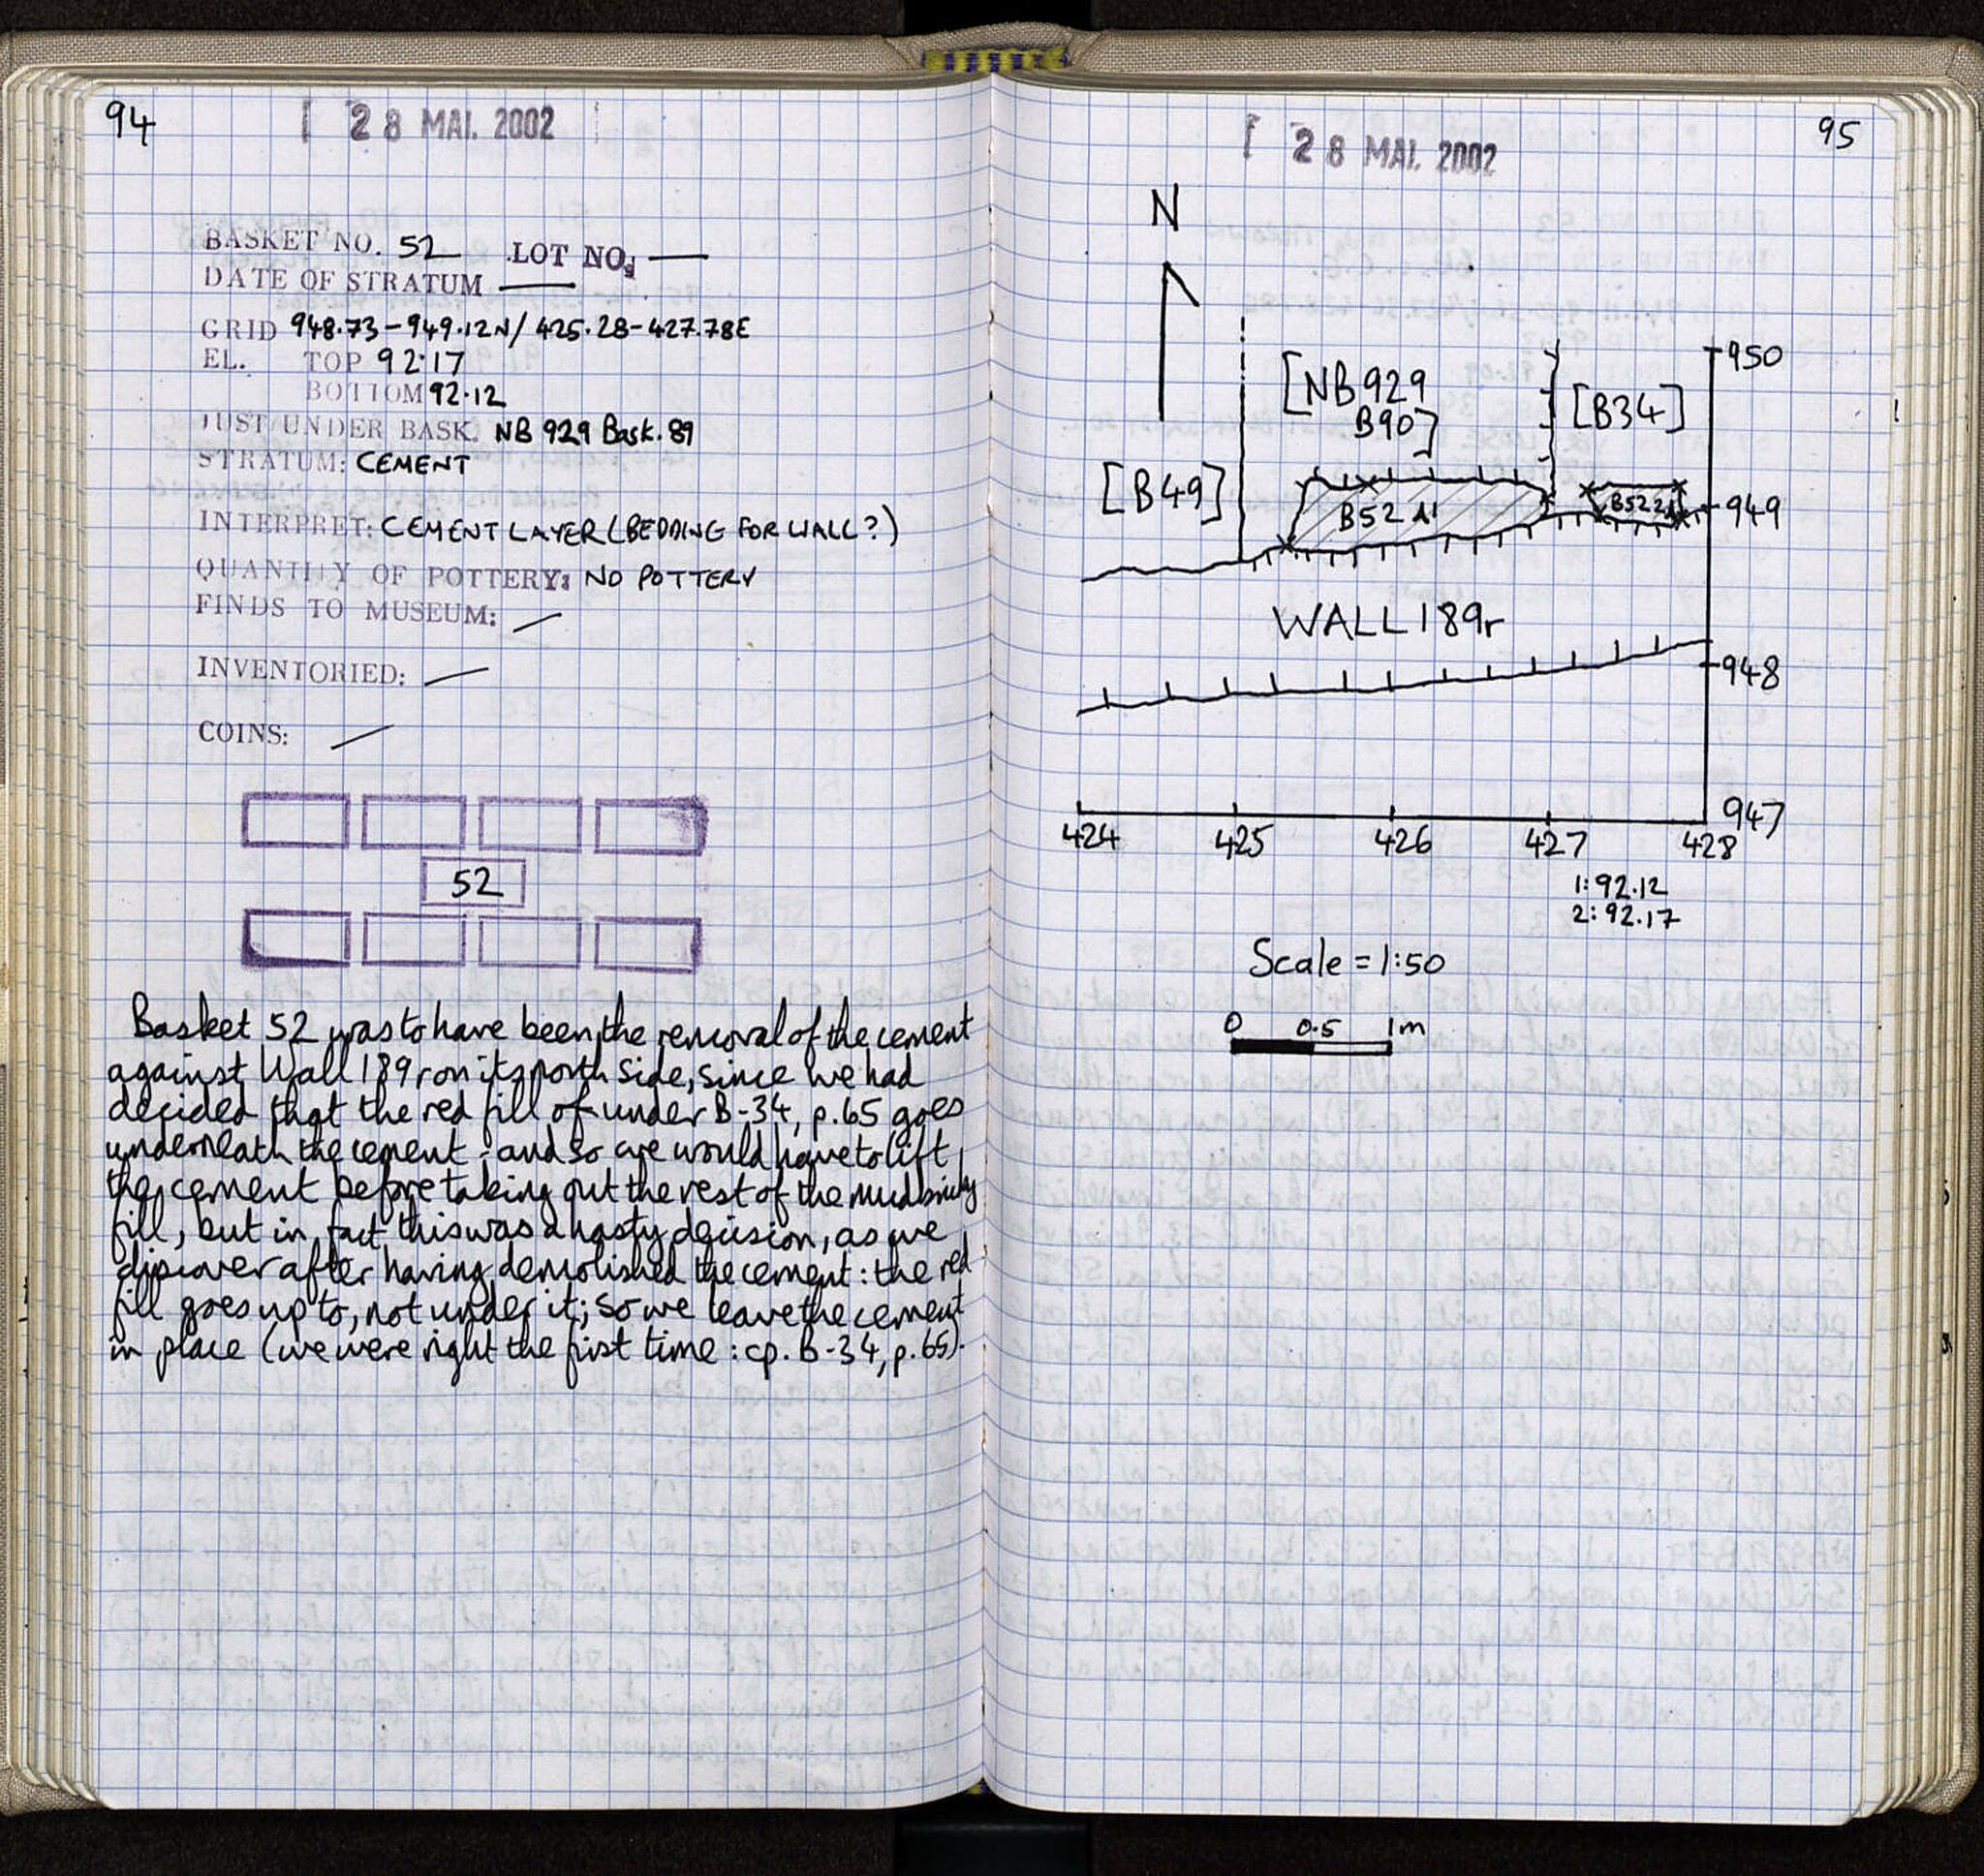 94
28 MAI. 2002
BASKET NO. 52 LOT NO: —
DATE OF STRATUM —
GRID 948.73-949.12N/ 425.28-427.78E
EL. TOP 92.17
BOTTOM 92.12
JUST/UNDER BASK. NB 929 Bask. 89
STRATUM: CEMENT
INTERPRET: CEMENT LAYER (BEDDING FOR WALL?)
QUANTITY OF POTTERY: NO POTTERY
FINDS TO MUSEUM: —
INVENTORIED: —
COINS: —
52
Basket 52 was to have been the removal of the cement
against Wall 189r on its north side, since we had
decided that the red fill of under B-34, p.65 goes
underneath the cement - and so we would have to lift
the cement before taking out the rest of the mudbricky
fill, but in fact this was a hasty decision, as we
discover after having demolished the cement: the red
fill goes up to, not under it; so we leave the cement
in place (we were right the first time: cp. B-34, p.65).
95
28 MAI. 2002
N
[NB 929
B90]
[B34]
[B49]
B52 1
B52 2
WALL 189r
950
949
948
947
424 425 426 427 428
1: 92.12
2: 92.17
Scale = 1:50
0 0.5 1m